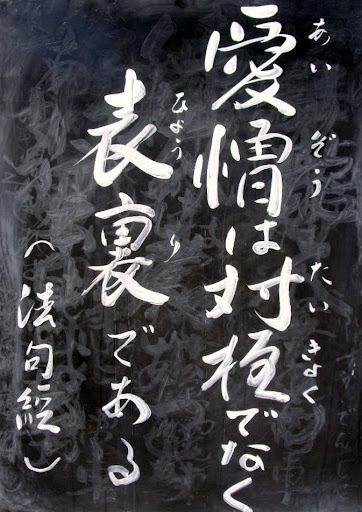 愛憎は対極でなく
あい ぞう たい きょく
表裏である
ひょう り
(法句経)